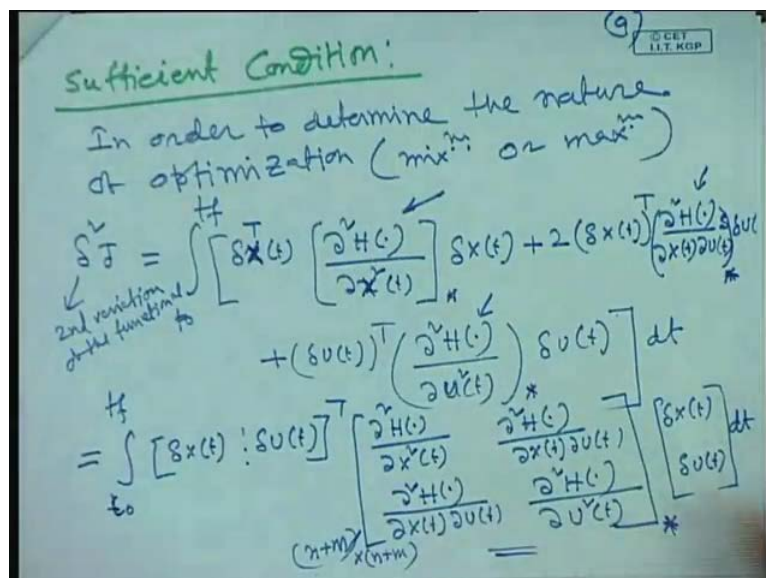 (9)
© CET
I.I.T. KGP
Sufficient Condition:
In order to determine the nature
of optimization (mix^m or max^m)
δ²J = ∫_{t0}^{tf} [δx^T(t) [∂²H(·)/∂x²(t)]_* δx(t) + 2(δx(t))^T (∂²H(·)/∂x(t)∂u(t))_* δu(
2nd variation
of the functional
+ (δu(t))^T (∂²H(·)/∂u²(t))_* δu(t)] dt
= ∫_{t0}^{tf} [δx(t) ⋮ δu(t)]^T [∂²H(·)/∂x²(t) ∂²H(·)/∂x(t)∂u(t)
∂²H(·)/∂x(t)∂u(t) ∂²H(·)/∂u²(t)]_* [δx(t)
δu(t)] dt
(n+m)×(n+m)